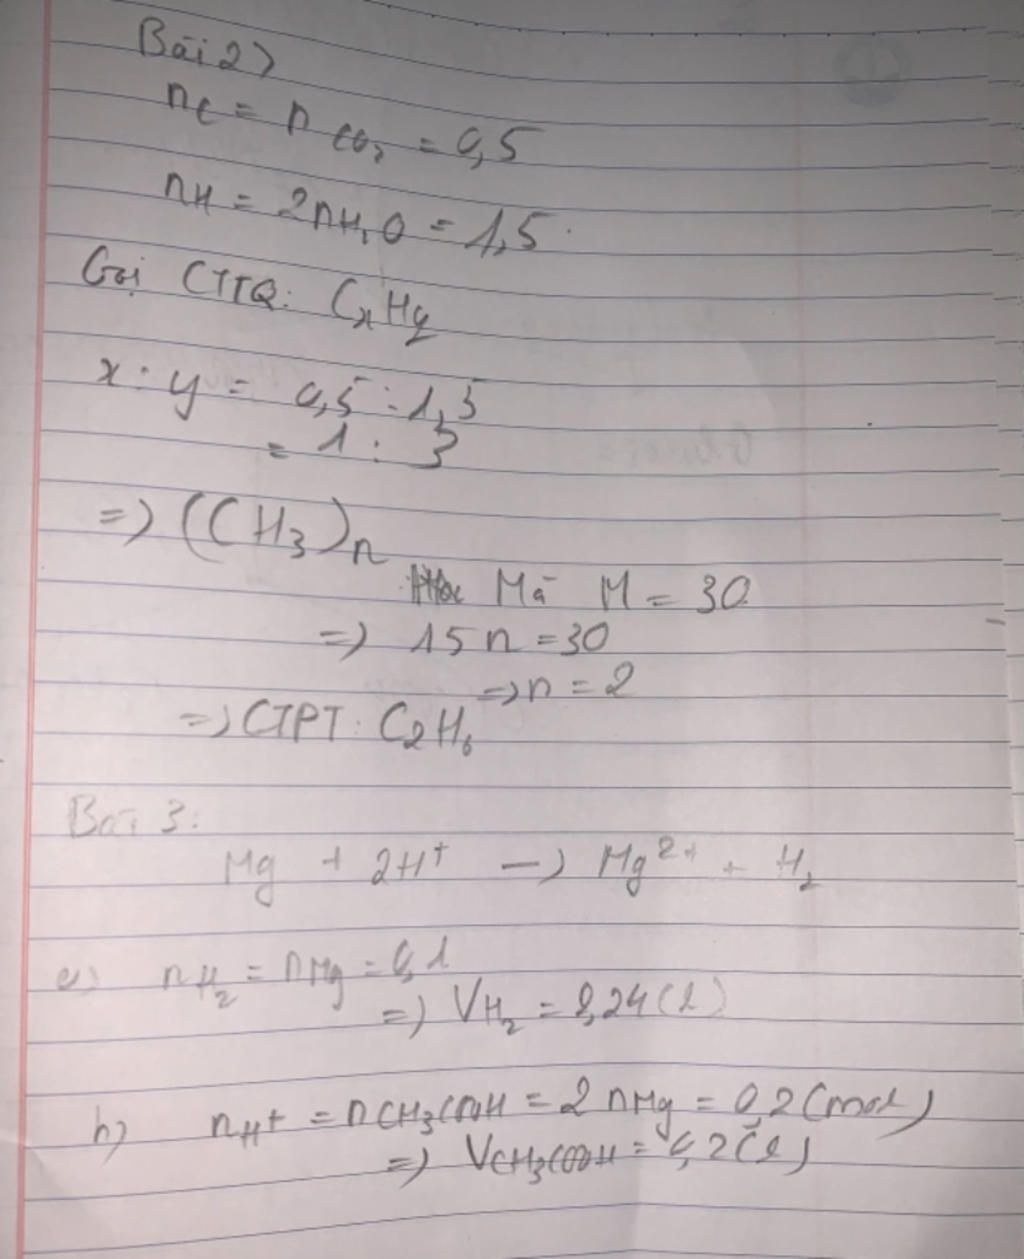 Bài 2)
nC = nCO₂ = 0,5
nH = 2nH₂O = 1,5.
Gọi CTTQ: CxHy
x : y = 0,5 : 1,5
= 1 : 3
=> (CH₃)n
Mà M = 30
=> 15n = 30
=> n = 2
=> CTPT: C₂H₆
Bài 3:
Mg + 2H⁺ —> Mg²⁺ + H₂
a) nH₂ = nMg = 0,1
=> VH₂ = 2,24 (l)
b) nH⁺ = nCH₃COOH = 2nMg = 0,2 (mol)
=> VCH₃COOH = 0,2 (l)